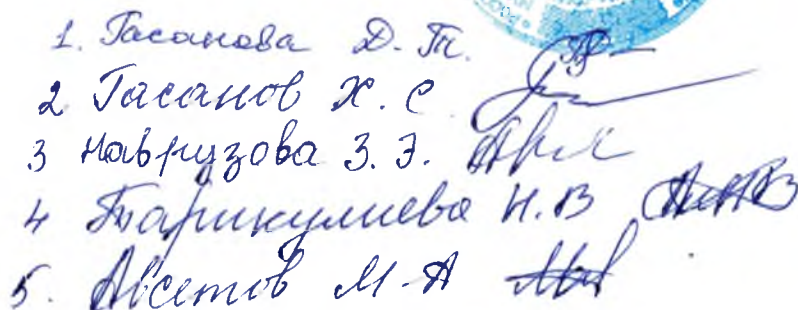 1. Гасанова Д. Т.
2 Гасанов Х. С
3 Наврузова З. Э.
4 Тарикулиева Н. В
5. Авсетов М. А